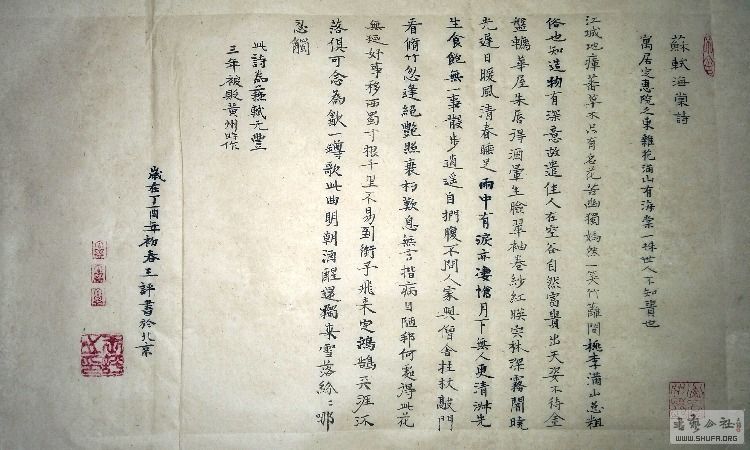 蘇軾海棠詩
寓居定惠院之東雜花滿山有海棠一株世人不知貴也
江城地瘴蕃草木只有名花苦幽獨嫣然一笑竹籬間桃李滿山总粗
俗也知造物有深意故遣佳人在空谷自然富貴出天姿不待金
盤轎華屋朱唇得酒暈生臉翠袖卷紗紅映肉林深霧闇曉
光遲日暖風清春睡足雨中有淚亦凄愴月下無人更清淑先
生食飽無一事散步逍遥自捫腹不問人家與僧舍拄杖敲門
看脩竹忽逢絕艷照衰朽歎息無言揩病目陋邦何處得此花
無延好事移西蜀寸根千里不易到銜子飛來定鴻鵠天涯汦
落俱可念為飲一樽歌此曲明朝酒醒還獨來雪落紛:哪
忍觸
此詩為蘇軾元豐
三年被貶黃州時作
歲在丁酉年初春王評書於北京
WWW.SHUFA.ORG